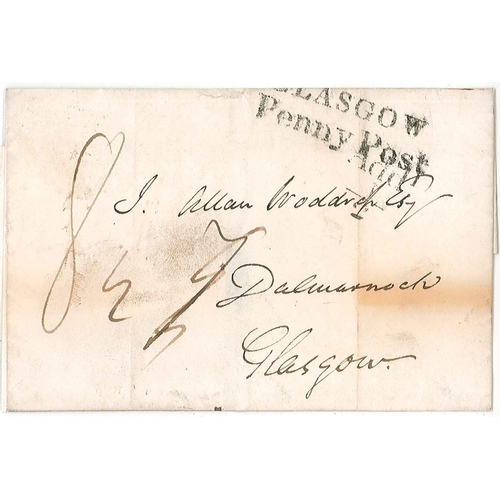 GLASGOW
Penny Post
Addl
1
J. Allan Woddrop Esq
Dalmarnock
Glasgow.
8½
7